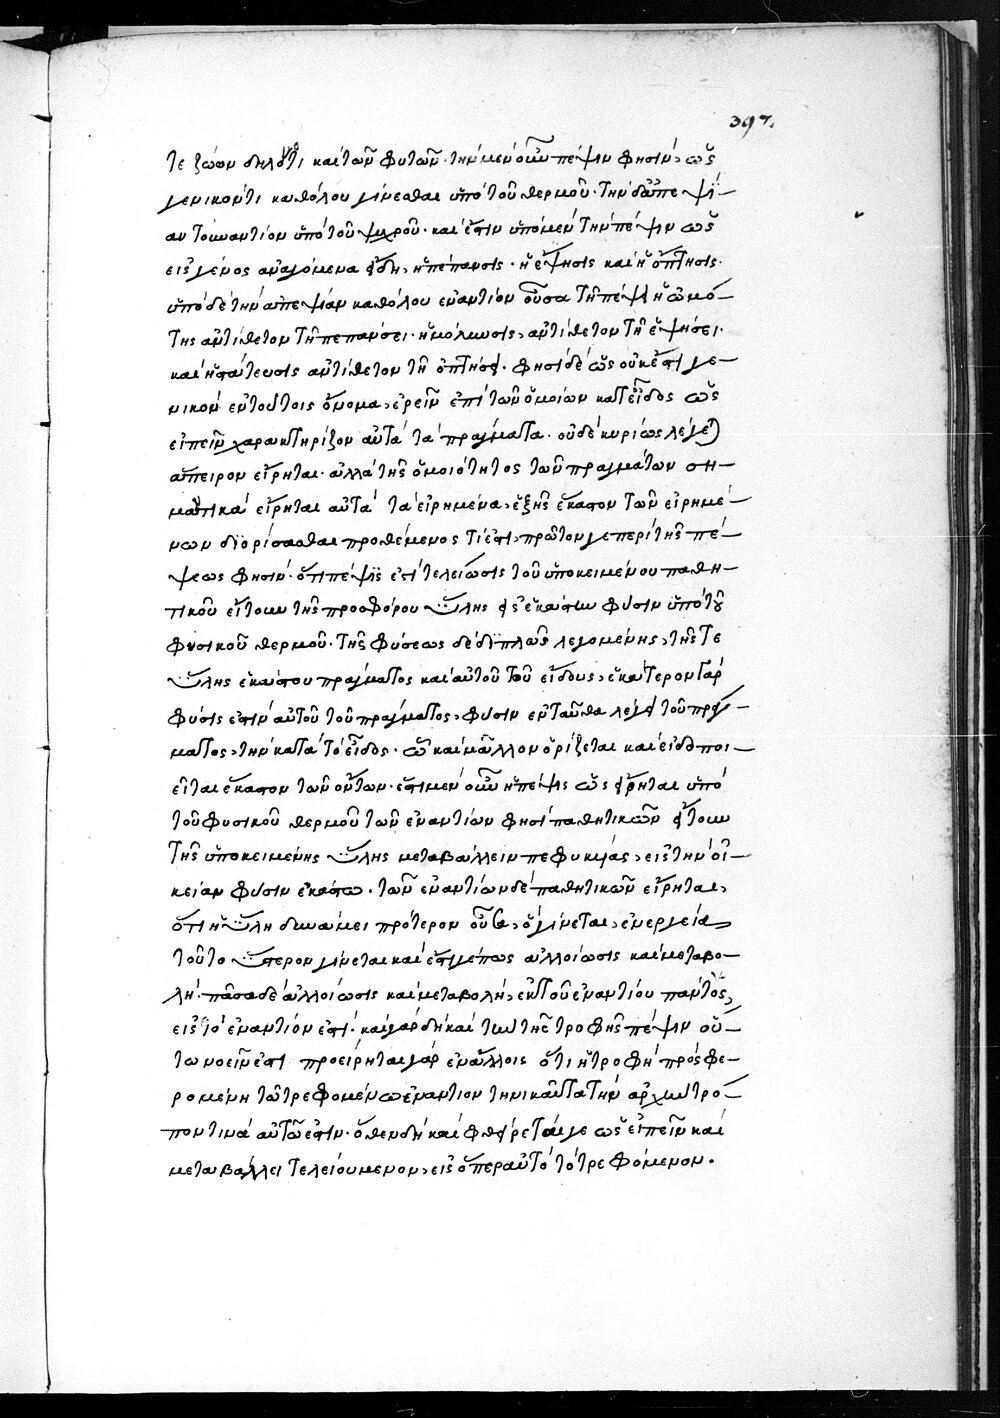 397.
τε ζώων δηλονότι καὶ τῶν φυτῶν· τὴν μὲν οὖν πέψιν φησὶν, ὡς
γενικόν τι καθόλου γίνεσθαι ὑπὸ τοῦ θερμοῦ· τὴν δ' ἀπεψί–
αν τοὐναντίον ὑπὸ τοῦ ψυχροῦ· καὶ ἔστιν ὑπὸ μὲν τὴν πέψιν ὡς
εἰς γένος ἀναγόμενα εἴδη, ἡ πέπανσις· ἡ ἕψησις καὶ ἡ ὄπτησις·
ὑπὸ δὲ τὴν ἀπεψίαν καθόλου ἐναντίον οὖσα τῇ πέψει ἡ ὠμό–
της ἀντίθετον τῇ πεπάνσει· ἡ μόλυνσις, ἀντίθετον τῇ ἑψήσει·
καὶ ἡ στάτευσις ἀντίθετον τῇ ὀπτήσει· φησὶ δὲ ὡς οὐκ ἔστι γε–
νικὸν ἐν τούτοις ὄνομα, ἐρεῖν ἐπὶ τῶν ὁμοίων κατ' εἶδος ὡς
εἰπεῖν χαρακτηρίζον αὐτὰ τὰ πράγματα· οὐδὲ κυρίως λέγεται
ἄπειρον εἴρηται· ἀλλὰ τῆς ὁμοιότητος τῶν πραγμάτων ση–
μαντικὰ εἴρηται αὐτὰ τὰ εἰρημένα, ἑξῆς ἕκαστον τῶν εἰρημέ–
νων διορίσασθαι προθέμενος τί ἐστι, πρῶτόν γε περὶ τῆς πέ–
ψεως φησίν· ὅτι πέψις ἐστὶ τελείωσις τοῦ ὑποκειμένου παθη–
τικοῦ εἴτουν τῆς προσφόρου ὕλης εἰς ἑκάστην φύσιν ὑπὸ τοῦ
φυσικοῦ θερμοῦ· τῆς φύσεως δὲ διπλῶς λεγομένης, τῆς τε
ὕλης ἑκάστου πράγματος καὶ αὐτοῦ τοῦ εἴδους, ἑκάτερον γὰρ
φύσις ἐστὶν αὐτοῦ τοῦ πράγματος, φύσιν ἐνταῦθα λέγει τοῦ πράγ–
ματος, τὴν κατὰ τὸ εἶδος· ᾧ καὶ μᾶλλον ὁρίζεται καὶ εἰδοποι–
εῖται ἕκαστον τῶν ὄντων· ἔστι μὲν οὖν ἡ πέψις ὡς εἴρηται ὑπὸ
τοῦ φυσικοῦ θερμοῦ τῶν ἐναντίων φησὶ παθητικῶν εἴτουν
τῆς ὑποκειμένης ὕλης μεταβάλλειν πεφυκυίας, εἰς τὴν οἰ–
κείαν φύσιν ἑκάστῳ· τῶν ἐναντίων δὲ παθητικῶν εἴρηται,
ὅτι ἡ ὕλη δυνάμει πρότερον οὖσα, ὃ γίνεται, ἐνεργείᾳ
τοῦτο ὕστερον γίνεται καὶ ἔστι γέ πως ἀλλοίωσις καὶ μεταβο–
λή· πᾶσα δὲ ἀλλοίωσις καὶ μεταβολὴ, ἐκ τοῦ ἐναντίου παντὸς,
εἰς τὸ ἐναντίον ἐστί· καὶ γὰρ δὴ καὶ τὴν τῆς τροφῆς πέψιν οὕ–
τω νοεῖν ἔστι προείρηται γὰρ ἐν ἄλλοις ὅτι ἡ τροφὴ προσφε–
ρομένη τῷ τρεφομένῳ ἐναντίον τηνικαῦτα τὴν ἀρχὴν τρό–
πον τινὰ αὐτῷ ἐστιν· ὅθεν δὴ καὶ φθείρεταί γε ὡς εἰπεῖν καὶ
μεταβάλλει τελειούμενον, εἰς ὅπερ αὐτὸ τὸ τρεφόμενον.